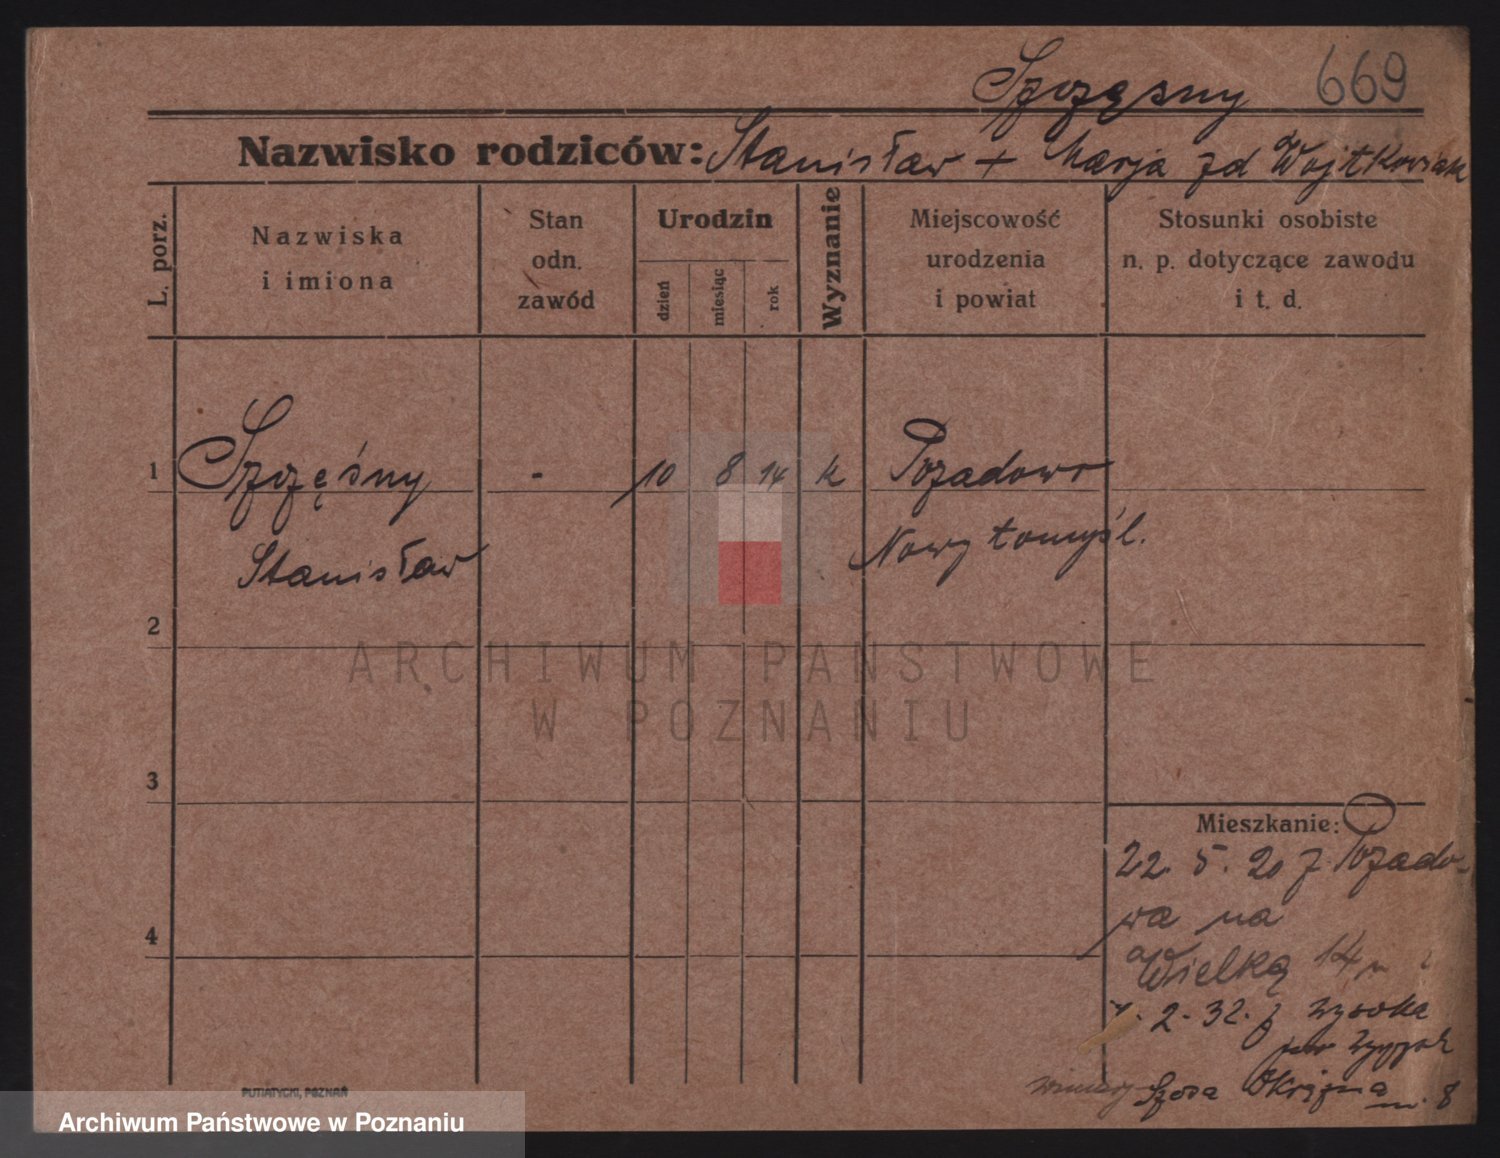 Szczęsny 669
Nazwisko rodziców: Stanisław + Marja zd Wojtkowiak
L. porz.
Nazwiska
i imiona
Stan
odn.
zawód
Urodzin
dzień
miesiąc
rok
Wyznanie
Miejscowość
urodzenia
i powiat
Stosunki osobiste
n. p. dotyczące zawodu
i t. d.
1 Szczęśny - 10 8 14 k Pozadowo
Stanisław Nowy tomyśl.
2
ARCHIWUM PAŃSTWOWE
W POZNANIU
3
Mieszkanie:
22. 5. 20 z Pozado-
4 wa na
Wielką 14
2. 32. z Wysoka
pow
Szosa Okrężna 8
PUTIATYCKI, POZNAŃ
Archiwum Państwowe w Poznaniu